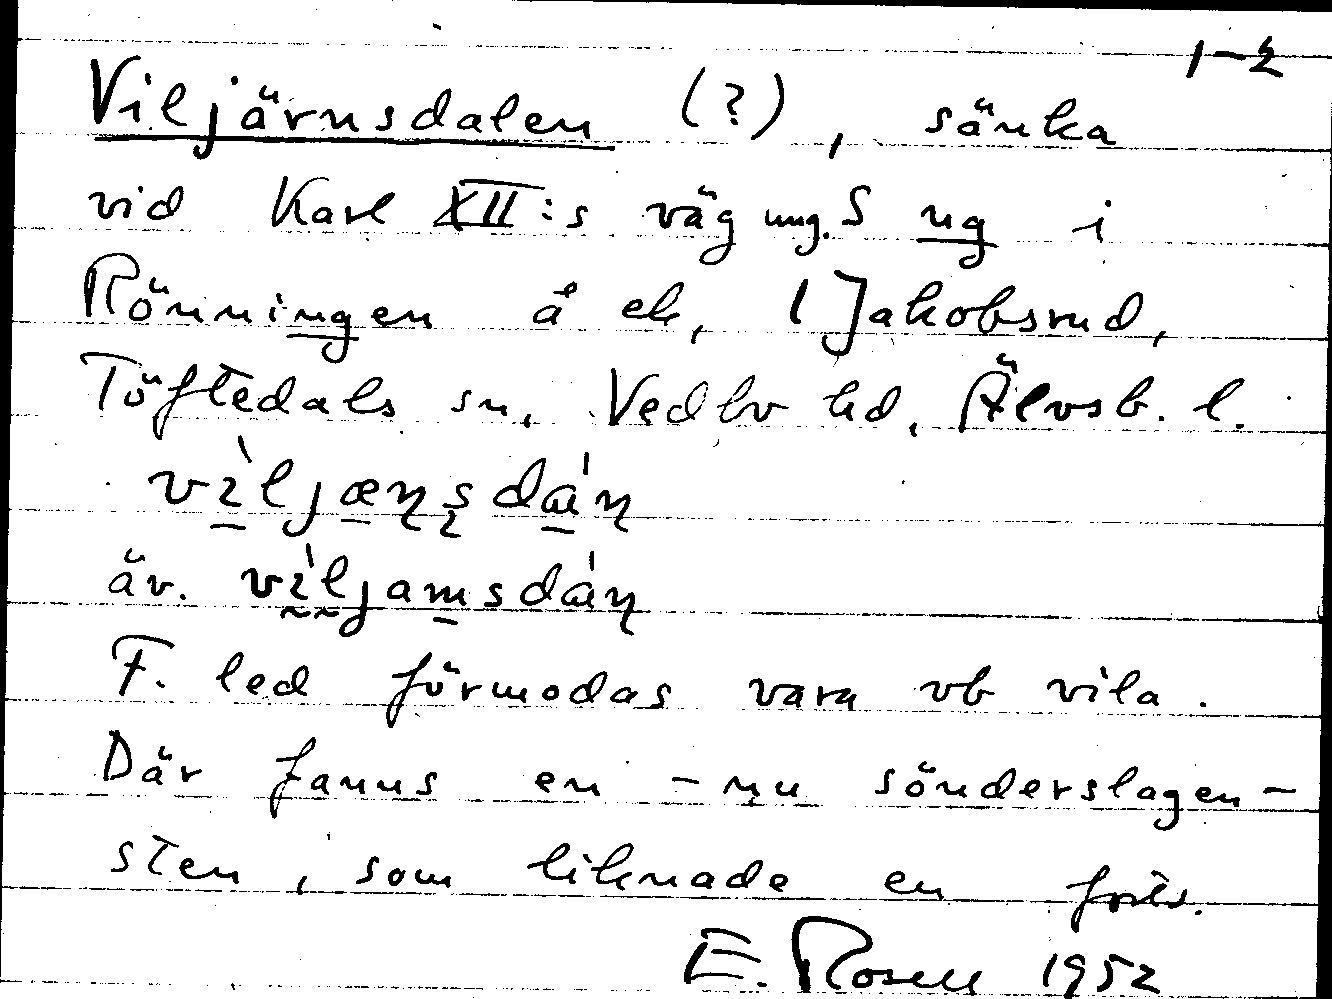 1–2
Viljärnsdalen (?), sänka
vid Karl XII:s väg ung. S ng i
Rönningen å ek, 1 Jakobsrud,
Töftedals sn, Vedbo hd, Älvsb. l.
vìljæɳʂdáɳ
äv. vìljamsdáɳ
F. led förmodas vara vb vila.
Där fanns en – nu sönderslagen –
sten, som liknade en
E. Rosell 1952